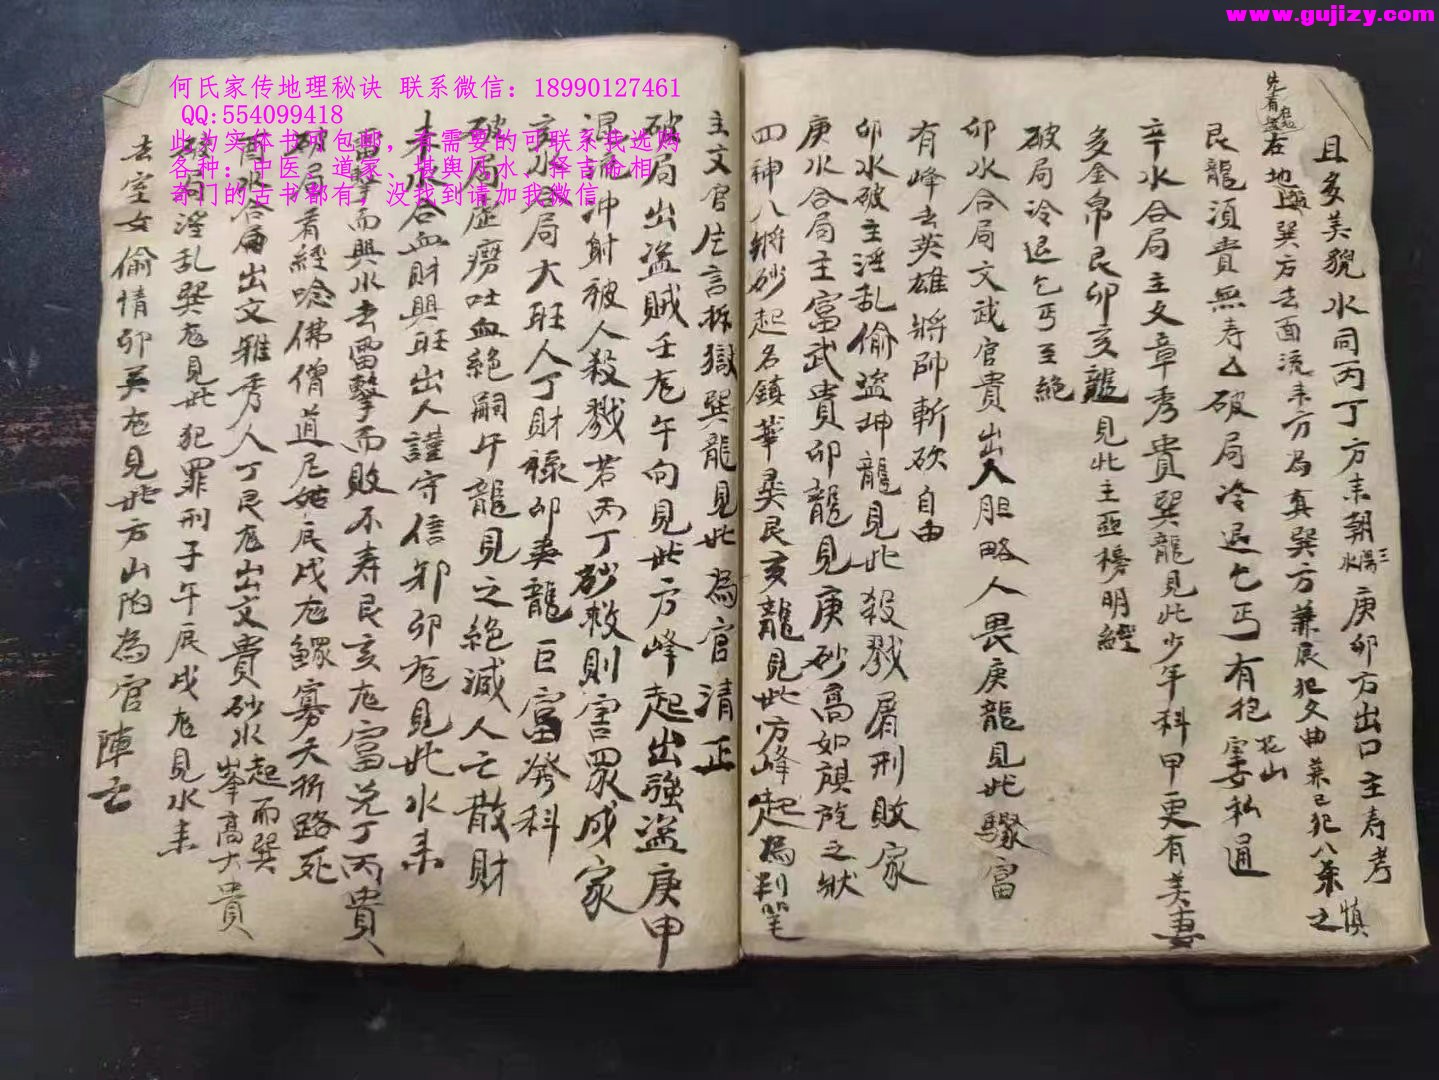 www.gujizy.com
何氏家传地理秘诀 联系微信：18990127461
QQ:554099418
此为实体书可包邮，有需要的可联系我选购
各种：中医、道家、堪舆风水、择吉命相
奇门的古书都有，没找到请加我微信
且多美貌水同丙丁方来朝三陽水庚卯方出口主寿考
地巽方去酉流来方為真巽方兼辰犯文曲兼巳犯八柔之慎
艮龍湏貴無寿破局冷退乞丐有抱花山妻私通
辛水合局主文章秀貴巽龍見此少年科甲更有美妻
多金帛艮卯亥龍見此主亚榜明經
破局冷退乞丐至絕
卯水合局文武官貴出人胆略人畏庚龍見此驟富
有峰去英雄將帥斬砍自由
卯水破主淫乱偷盗坤龍見此殺戮屠刑敗家
庚水合局主富武貴卯龍見庚砂高如旗
四神八將砂起名鎮華艮亥龍見此方峰起為判筆
主文官片言折獄巽龍見此為官清正
破局出盗賊壬龙午向見此方峰起出強盗庚申
混流冲射被人殺戮若丙丁砂救則害眾成家
亥水合局大旺人丁財禄卯龍巨富發科
破局虛痨吐血絕嗣午龍見之絕滅人亡散財
未水合血財興旺出人謹守信卯龙見此水来
雷擊而興水去雷擊而敗不寿艮亥龙富兑丁丙貴
破局看經唸佛僧道尼姑辰戌龙鰥寡夭折路死
酉水合局出文雅秀人丁艮龙出文貴砂水起而巽峯高大貴
破局淫乱巽龙見此犯罪刑子午辰戌龙見水来
去室女偷情卯龙見此方山陷為官陣亡